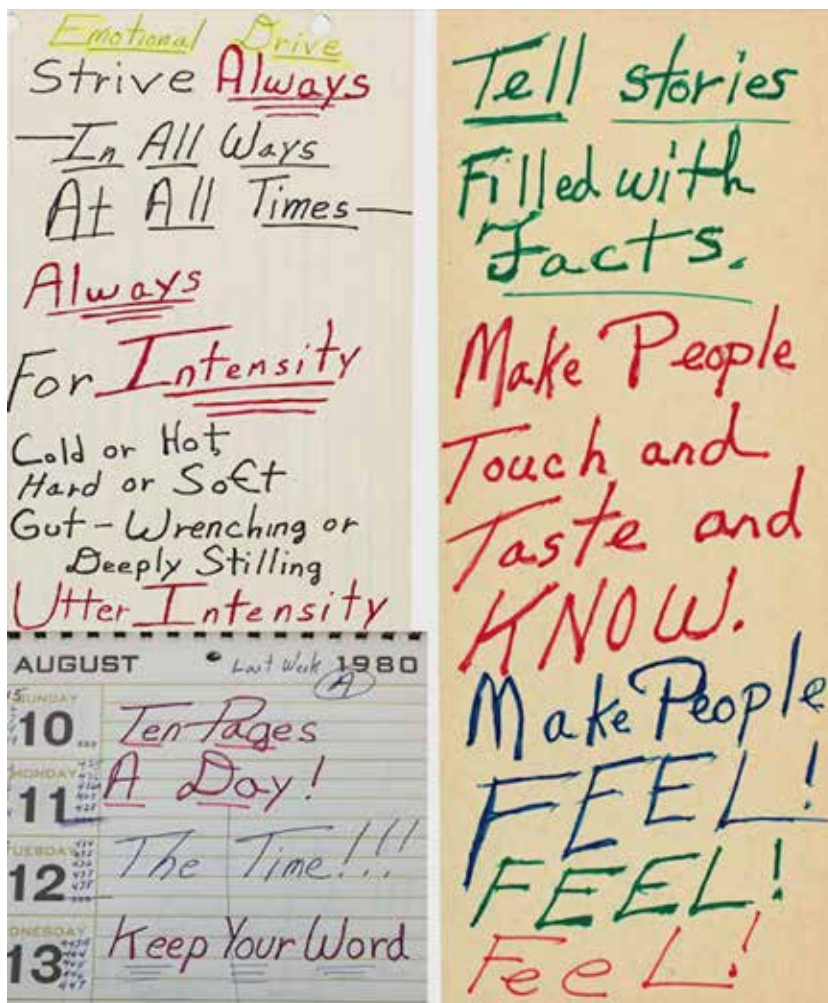 Emotional Drive
Strive Always
—In All Ways
At All Times—
Always
For Intensity
Cold or Hot,
Hard or Soft
Gut-Wrenching or
Deeply Stilling
Utter Intensity
AUGUST Last Week 1980
A
SUNDAY
10 Ten Pages
MONDAY
11 A Day!
TUESDAY
12 The Time!!!
WEDNESDAY
13 Keep Your Word
Tell stories
Filled with
Facts.
Make People
Touch and
Taste and
KNOW.
Make People
FEEL!
FEEL!
FeeL!